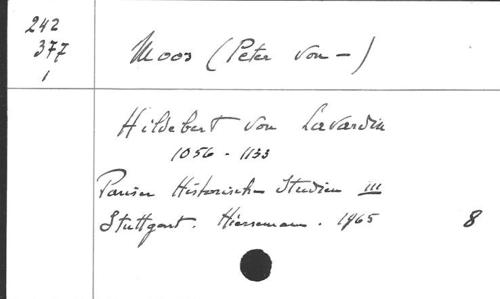 242
377
1
Moos (Peter von –)
Hildebert von Lavardin
1056 - 1133
Pariser Historische Studien III
Stuttgart. Hiersemann. 1965
8